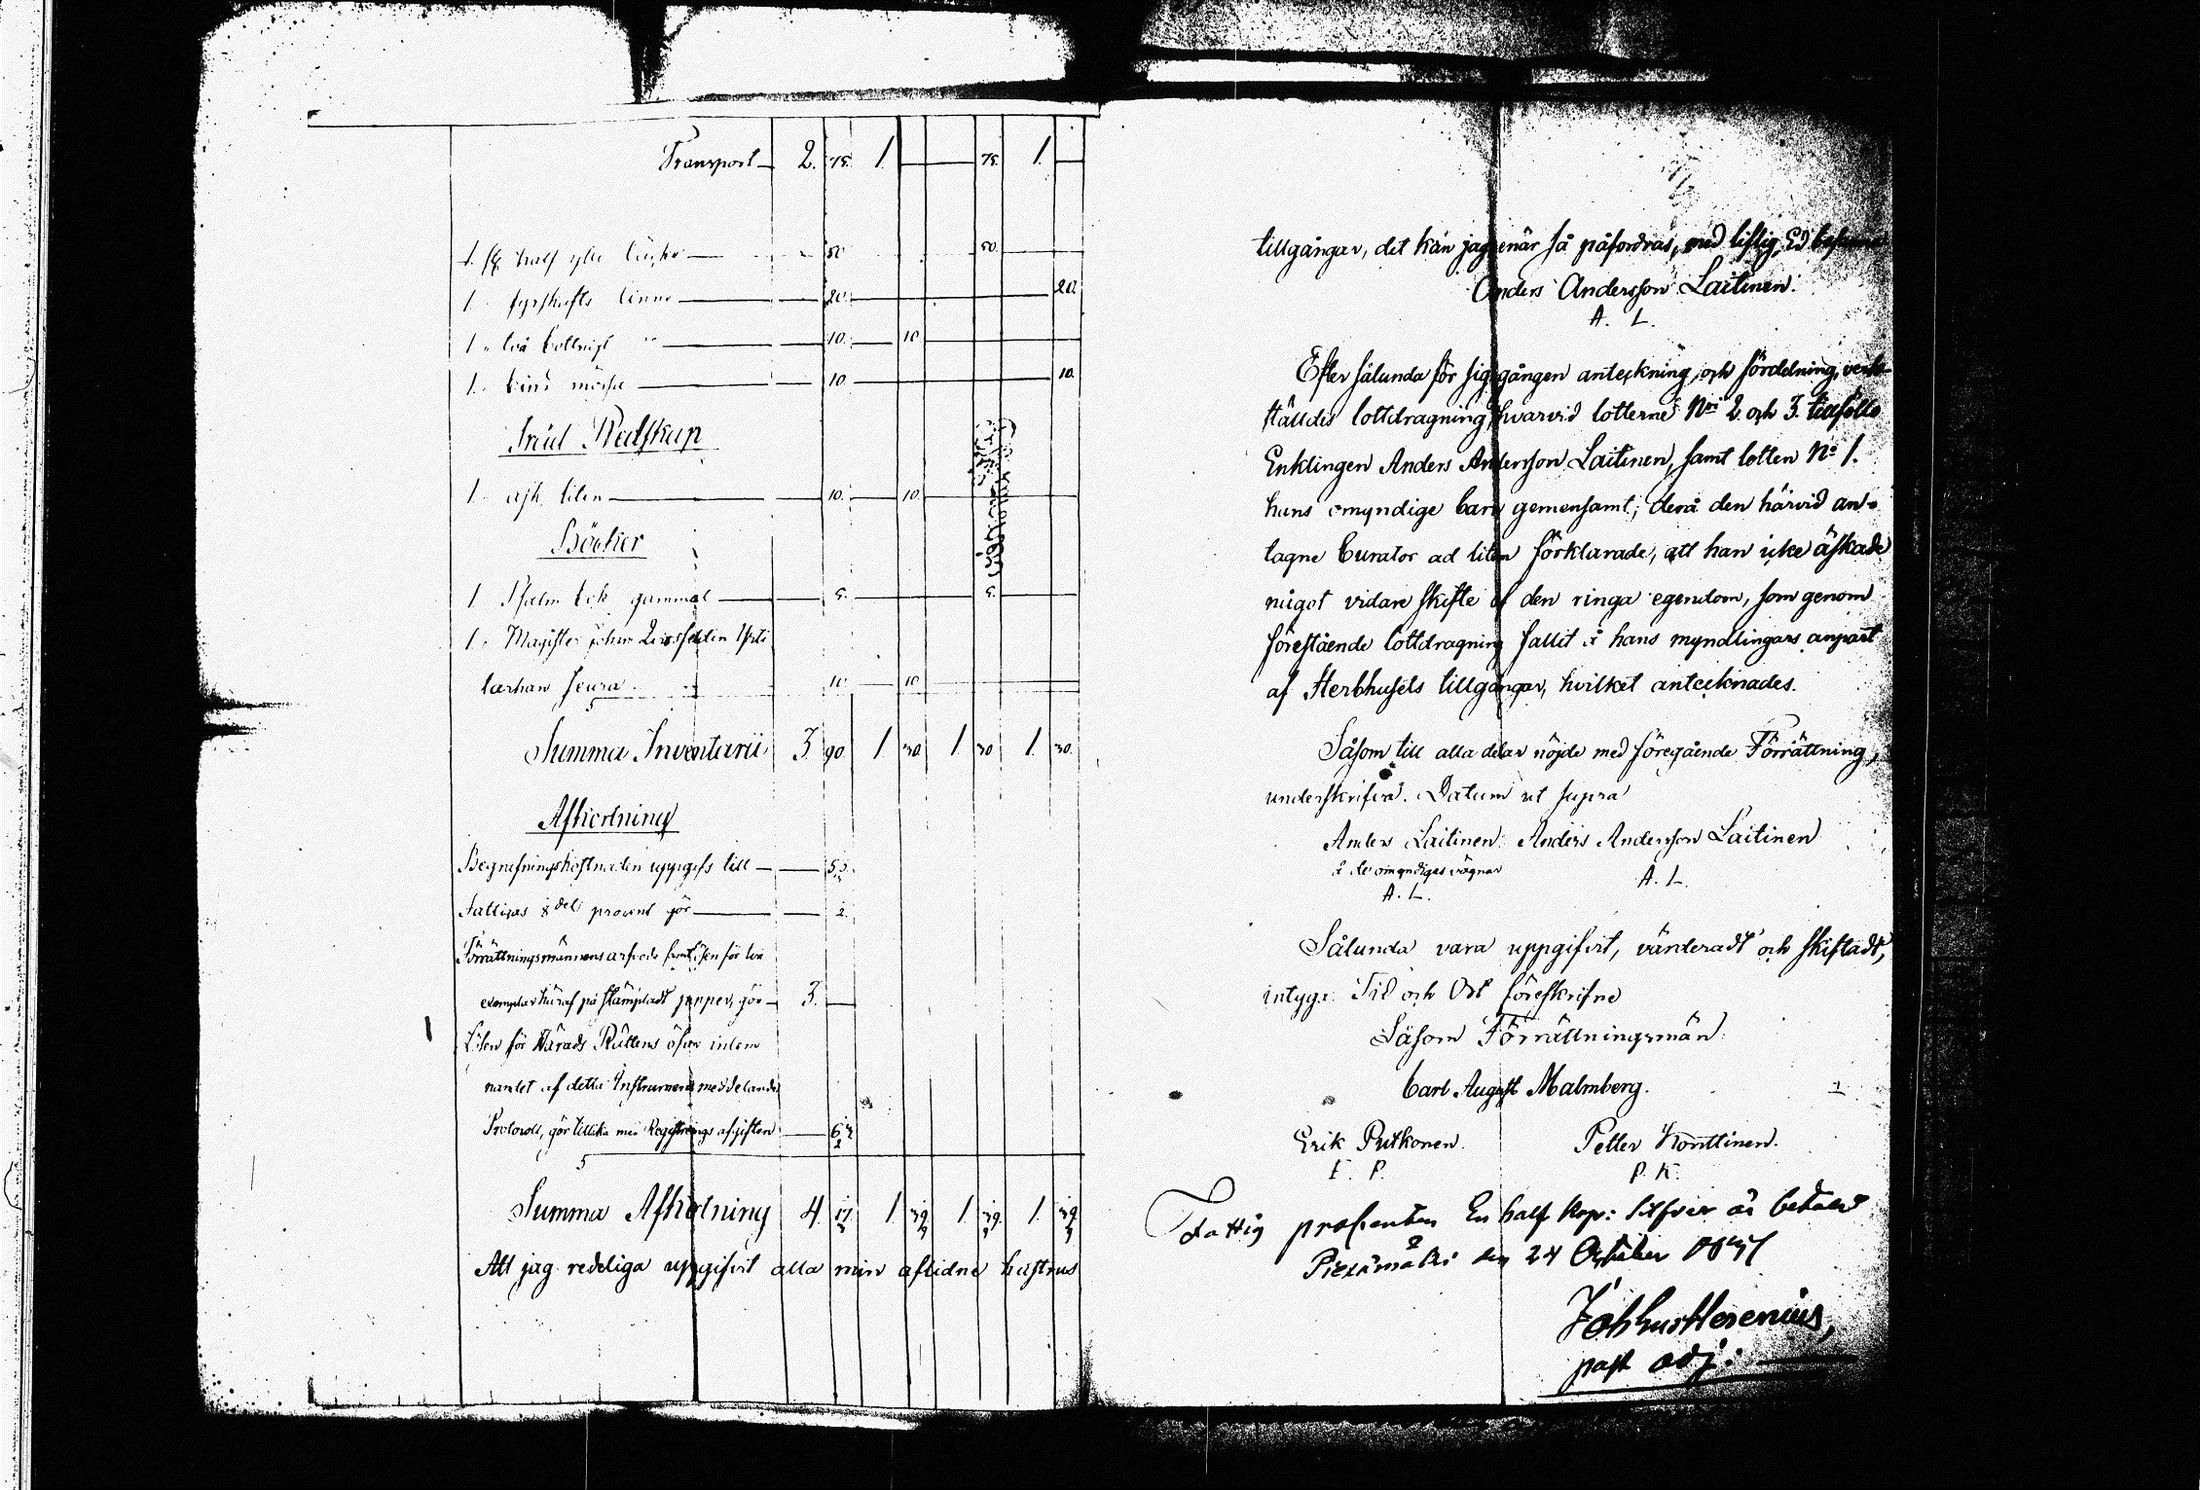 Transport 2. 75. 1. 75. 1.
1. half ylle 50 50.
1. fyrskafts linne 20. 20.
1. två 10. 10
1. mössa 10. 10.
Träd Redskap
1. ask liten 10. 10.
Böcker
1. Psalm bok gammal 5. 5.
1. Magister
Seura 10 10
Summa Inventarii 3. 90 1. 30. 1. 30 1. 30.
Afkortning
Begrafningskostnaden uppgifs till
Fattigas 8del procent gör
Förrättningsmännens arfvode samt lösen för två
exemplar häraf på stämpladt papper, gör 3.
Lösen för Härads Rättens öfver inlem
nandet af detta Instrument meddelande
Protocoll, gör tillika med Registrerings afgiften
Summa Afkortning 4. 1. 1. 1.
Att jag redeliga uppgifvit alla min aflidne hustrus
tillgångar, det kan jag enär så påfordras, med liflig Ed
Anders Andersson Laitinen.
A. L.
Efter sålunda för sig gången anteckning, och fördelning, verk
ställdes lottdragning, hvarvid lotterne Nri 2 och 3. tillföllo
Enklingen Anders Andersson Laitinen, samt lotten No 1.
hans omyndige barn gemensamt; derå den härvid an-
tagne Curator ad litem förklarade, att han icke äskade
något vidare skifte af den ringa egendom, som genom
förestående lottdragning fallit å hans myndlingars anpart
af Sterbhusets tillgångar, hvilket antecknades.
Såsom till alla delar nöjde med föregående Förrättning,
underskrifva. Datum ut supra
Anders Laitinen. Anders Andersson Laitinen
å de omyndiges vägnar
A. L. A. L.
Sålunda vara uppgifvit, värderadt och skiftadt,
intyga. Tid och Ort föreskrifne
Såsom Förrättningsmän:
Carl August Malmberg.
Erik Putkonen. Petter Konttinen.
E. P. P. K.
Fattig procenten En half Kop: Silfver är betald
den 24 October
past adj: